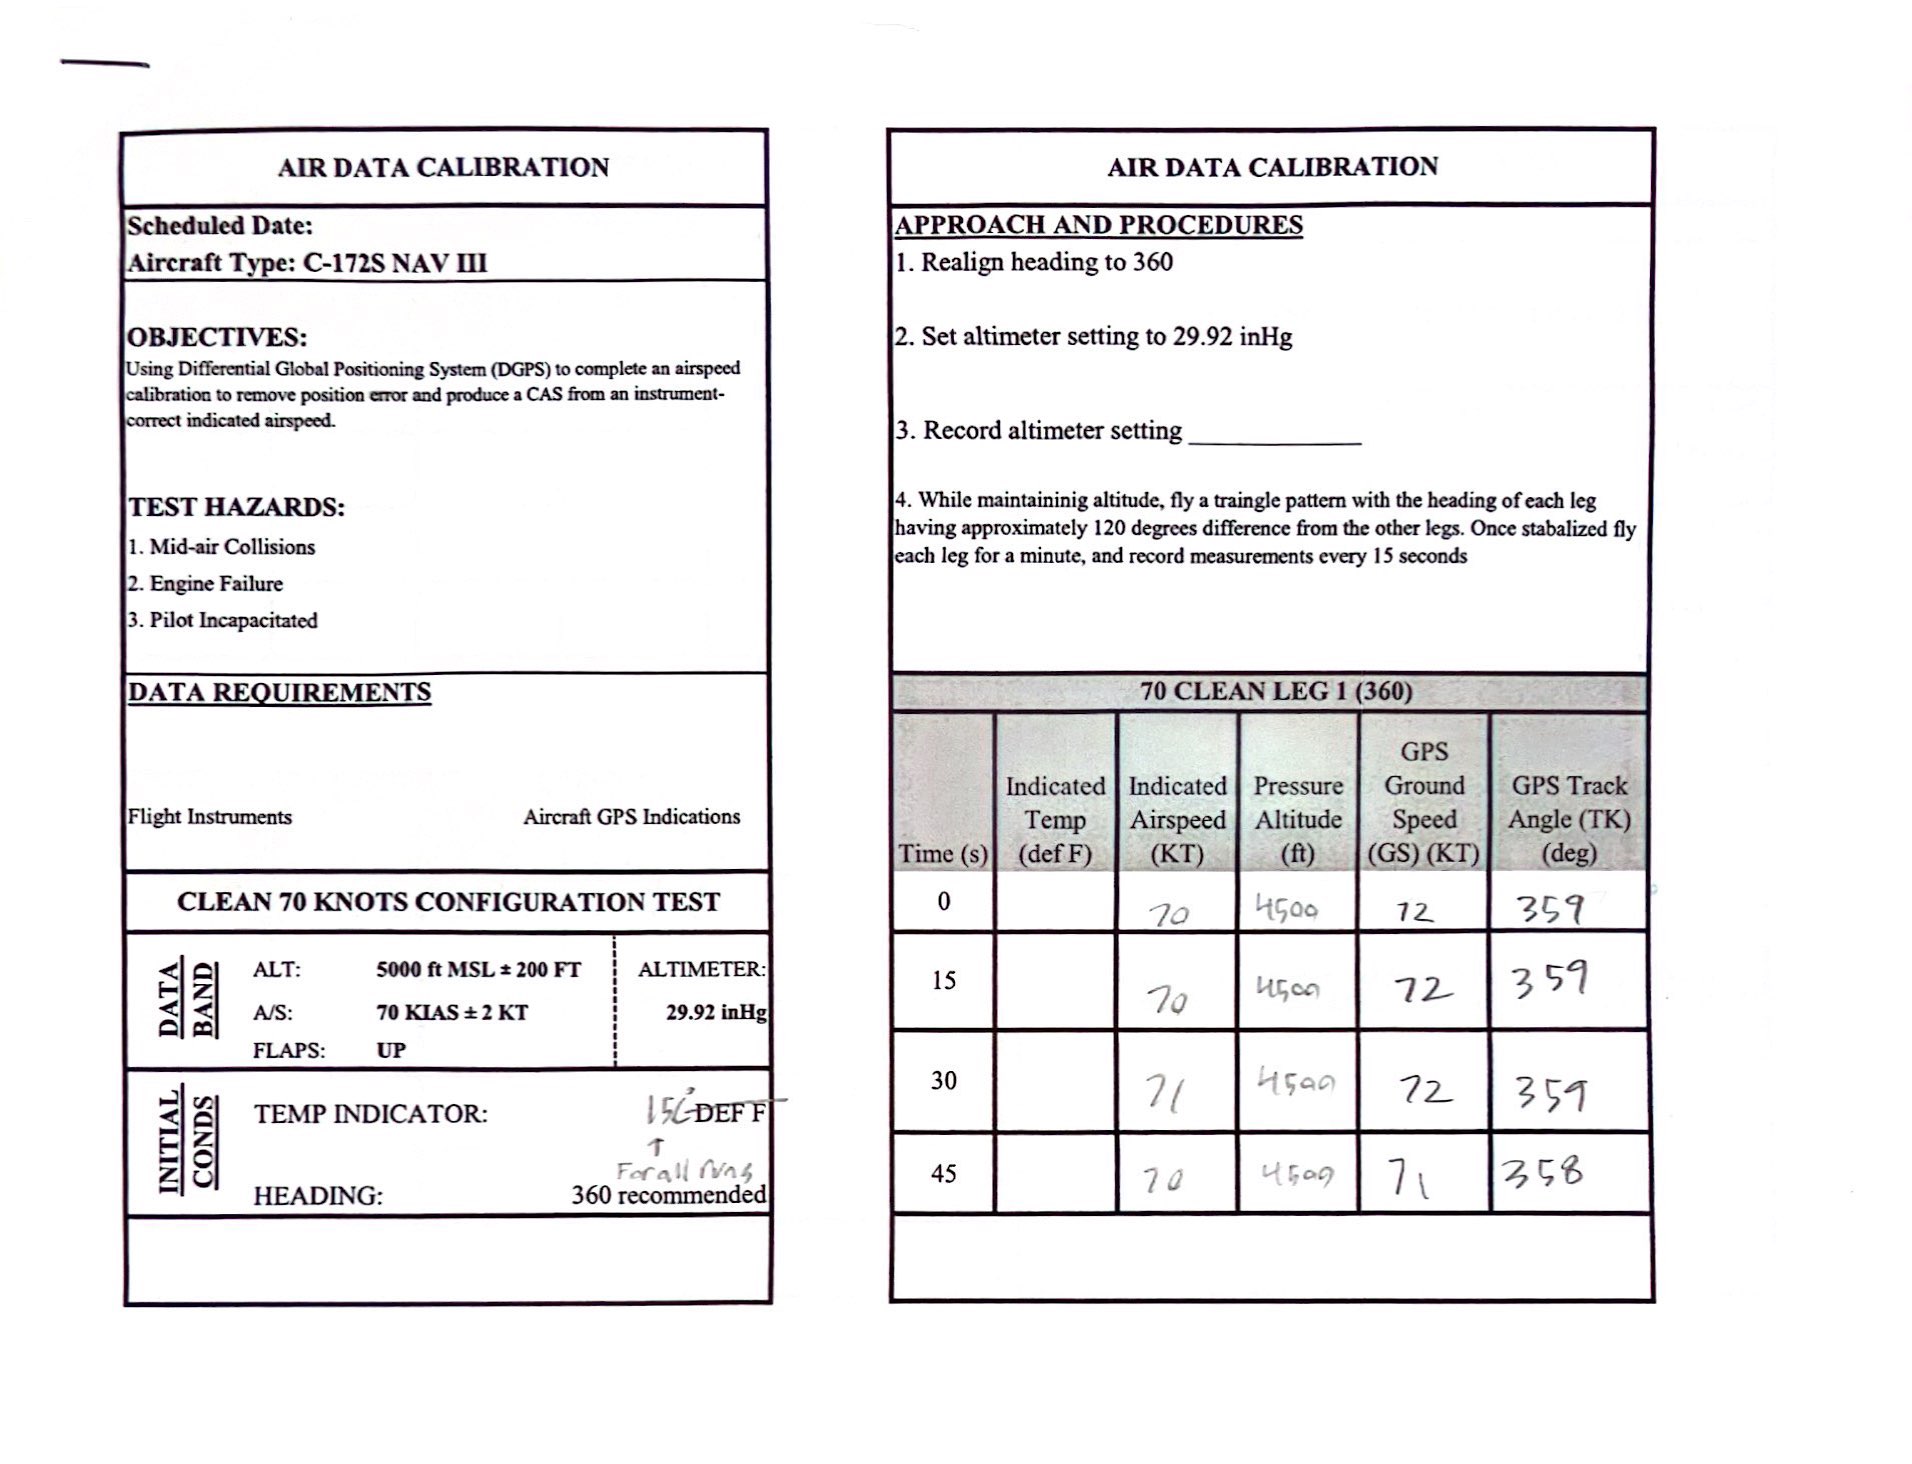 AIR DATA CALIBRATION
Scheduled Date:
Aircraft Type: C-172S NAV III
OBJECTIVES:
Using Differential Global Positioning System (DGPS) to complete an airspeed
calibration to remove position error and produce a CAS from an instrument-
correct indicated airspeed.
TEST HAZARDS:
1. Mid-air Collisions
2. Engine Failure
3. Pilot Incapacitated
DATA REQUIREMENTS
Flight Instruments Aircraft GPS Indications
CLEAN 70 KNOTS CONFIGURATION TEST
DATA BAND
ALT: 5000 ft MSL ± 200 FT ALTIMETER:
A/S: 70 KIAS ± 2 KT 29.92 inHg
FLAPS: UP
INITIAL CONDS
TEMP INDICATOR: 15C° DEF F
↑
For all runs
HEADING: 360 recommended
AIR DATA CALIBRATION
APPROACH AND PROCEDURES
1. Realign heading to 360
2. Set altimeter setting to 29.92 inHg
3. Record altimeter setting
4. While maintaininig altitude, fly a traingle pattern with the heading of each leg
having approximately 120 degrees difference from the other legs. Once stabalized fly
each leg for a minute, and record measurements every 15 seconds
70 CLEAN LEG 1 (360)
Time (s) Indicated Temp (def F) Indicated Airspeed (KT) Pressure Altitude (ft) GPS Ground Speed (GS) (KT) GPS Track Angle (TK) (deg)
0 70 4500 72 359
15 70 4500 72 359
30 71 4500 72 359
45 70 4500 71 358